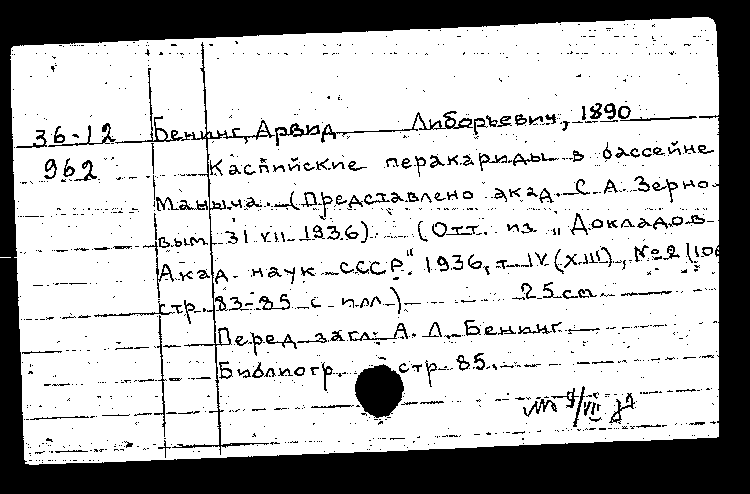 36-12 Бенинг, Арвид Либорьевич, 1890
962 Каспийские перакариды в бассейне
Маныча. (Представлено акад. С. А. Зерно-
вым 31 VII 1936). (Отт. из „Докладов
Акад. наук СССР". 1936, т. IV (XIII), № 2 (106
стр. 83-85 с илл.) 25 cm
Перед загл: А. Л. Бенинг.
Библиогр. стр 85.
9/VII